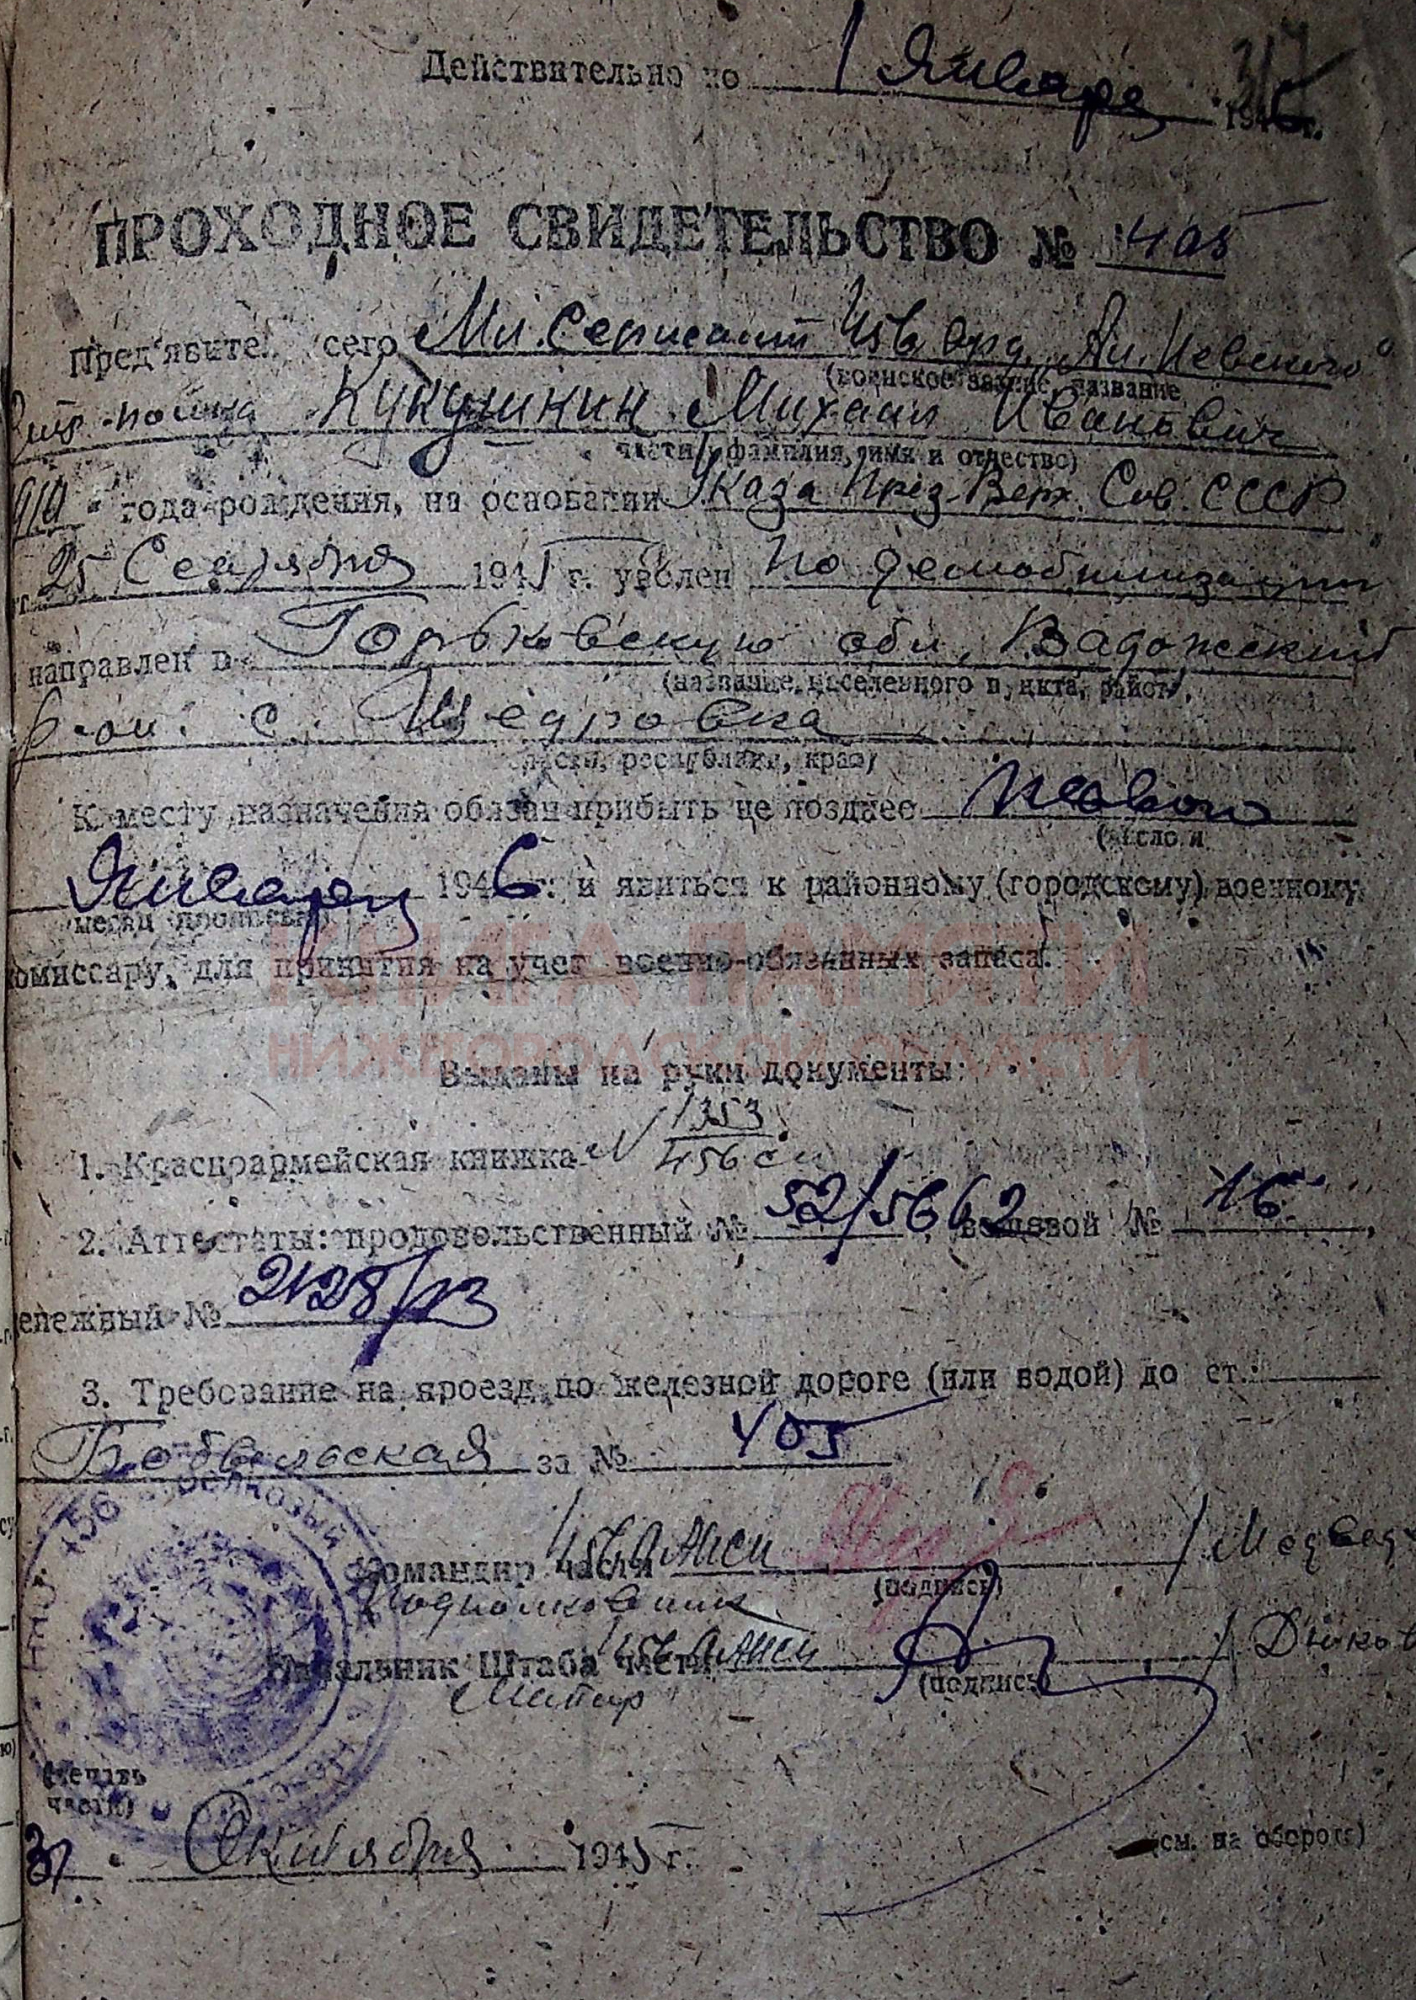 Действительно по 1 Января 1946 г.
317
ПРОХОДНОЕ СВИДЕТЕЛЬСТВО № 405
Пред'явитель сего Мл. Сержант 456 орд. "Ал. Невского"
(воинское звание, название
полка Кукушкин Михаил Иванович
части, фамилия, имя и отчество)
1910 года рождения, на основании Указа През. Верх. Сов. СССР
от 25 Сентября 1945 г. уволен по демобилизации
направлен в Горьковскую обл., Вадожский
(название населенного пункта, района,
р-он. с. Щедровка
области, республики, края)
К месту назначения обязан прибыть не позднее
(число и
Января 1946 г. и явиться к районному (городскому) военному
месяц прописью)
комиссару, для принятия на учет военно-обязанных запаса.
КНИГА ПАМЯТИ
НИЖЕГОРОДСКОЙ ОБЛАСТИ
Выданы на руки документы:
1. Красноармейская книжка N 1353
456 сп
2. Аттестаты: продовольственный № 52/5642, вещевой № 16,
денежный № 2128/13
3. Требование на проезд по железной дороге (или водой) до ст.
Бобыльская за № 405
Командир части 456 АНСП / Медвед
(подпись)
Подполковник
Начальник Штаба части 456 АНСП / Дюков
(подпись)
Майор
456 стрелковый
(печать
части)
31 Октября 1945 г.
(см. на обороте)